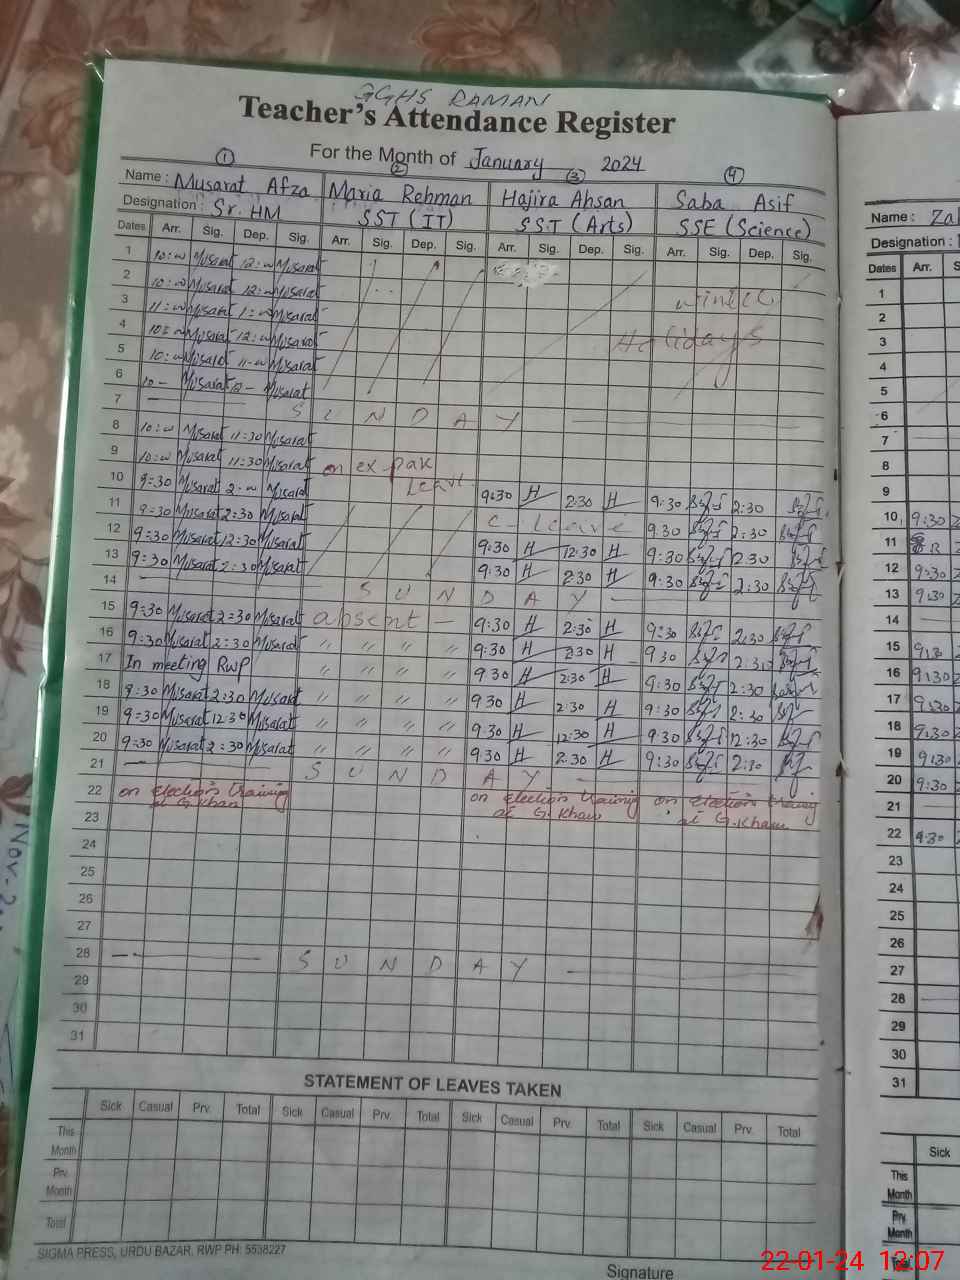 GGHS RAMAN
Teacher's Attendance Register
For the Month of January 2024
① ② ③ ④
Name : Musarat Afza Maria Rehman Hajira Ahsan Saba Asif
Designation : Sr. HM SST (IT) SST (Arts) SSE (Science)
Dates Arr. Sig. Dep. Sig. Arr. Sig. Dep. Sig. Arr. Sig. Dep. Sig. Arr. Sig. Dep. Sig.
1 Musarat Musarat
2 Musarat Musarat
3 Musarat Musarat
4 Musarat Musarat Holidays
5 Musarat Musarat
6 10 - Musarat 12 - Musarat
7 — SUNDAY
8 Musarat 11:30 Musarat
9 Musarat 11:30 Musarat on ex-pak Leave
10 9:30 Musarat Musarat 9:30 H 2:30 H 9:30 2:30
11 9:30 Musarat 2:30 Musarat C-Leave 9:30 2:30
12 9:30 Musarat 12:30 Musarat 9:30 H 12:30 H 9:30 12:30
13 9:30 Musarat 2:30 Musarat 9:30 H 2:30 H 9:30 2:30
14 — SUNDAY —
15 9:30 Musarat 2:30 Musarat absent — 9:30 H 2:30 H 9:30 2:30
16 9:30 Musarat 2:30 Musarat " " " " 9:30 H 2:30 H 9:30 2:30
17 In meeting RWP " " " " 9:30 H 2:30 H 9:30 2:30
18 9:30 Musarat 2:30 Musarat " " " " 9:30 H 2:30 H 9:30 2:30
19 9:30 Musarat 12:30 Musarat " " " " 9:30 H 12:30 H 9:30 12:30
20 9:30 Musarat 2:30 Musarat " " " " 9:30 H 2:30 H 9:30 2:30
21 — SUNDAY —
22 on election training at G.Khan on election training at G.Khan on election training at G.Khan
23
24
25
26
27
28 — SUNDAY —
29
30
31
STATEMENT OF LEAVES TAKEN
Sick Casual Prv. Total Sick Casual Prv. Total Sick Casual Prv. Total Sick Casual Prv. Total
This Month
Prv. Month
Total
SIGMA PRESS, URDU BAZAR, RWP PH: 5538227
Signature
Name :
Designation :
Dates Arr.
1
2
3
4
5
6
7
8
9
10 9:30
11
12 9:30
13 9:30
14
15 9:30
16 9:30
17 9:30
18 9:30
19 9:30
20 9:30
21
22 9:30
23
24
25
26
27
28
29
30
31
Sick
This Month
Prv. Month
Total
22-01-24 12:07